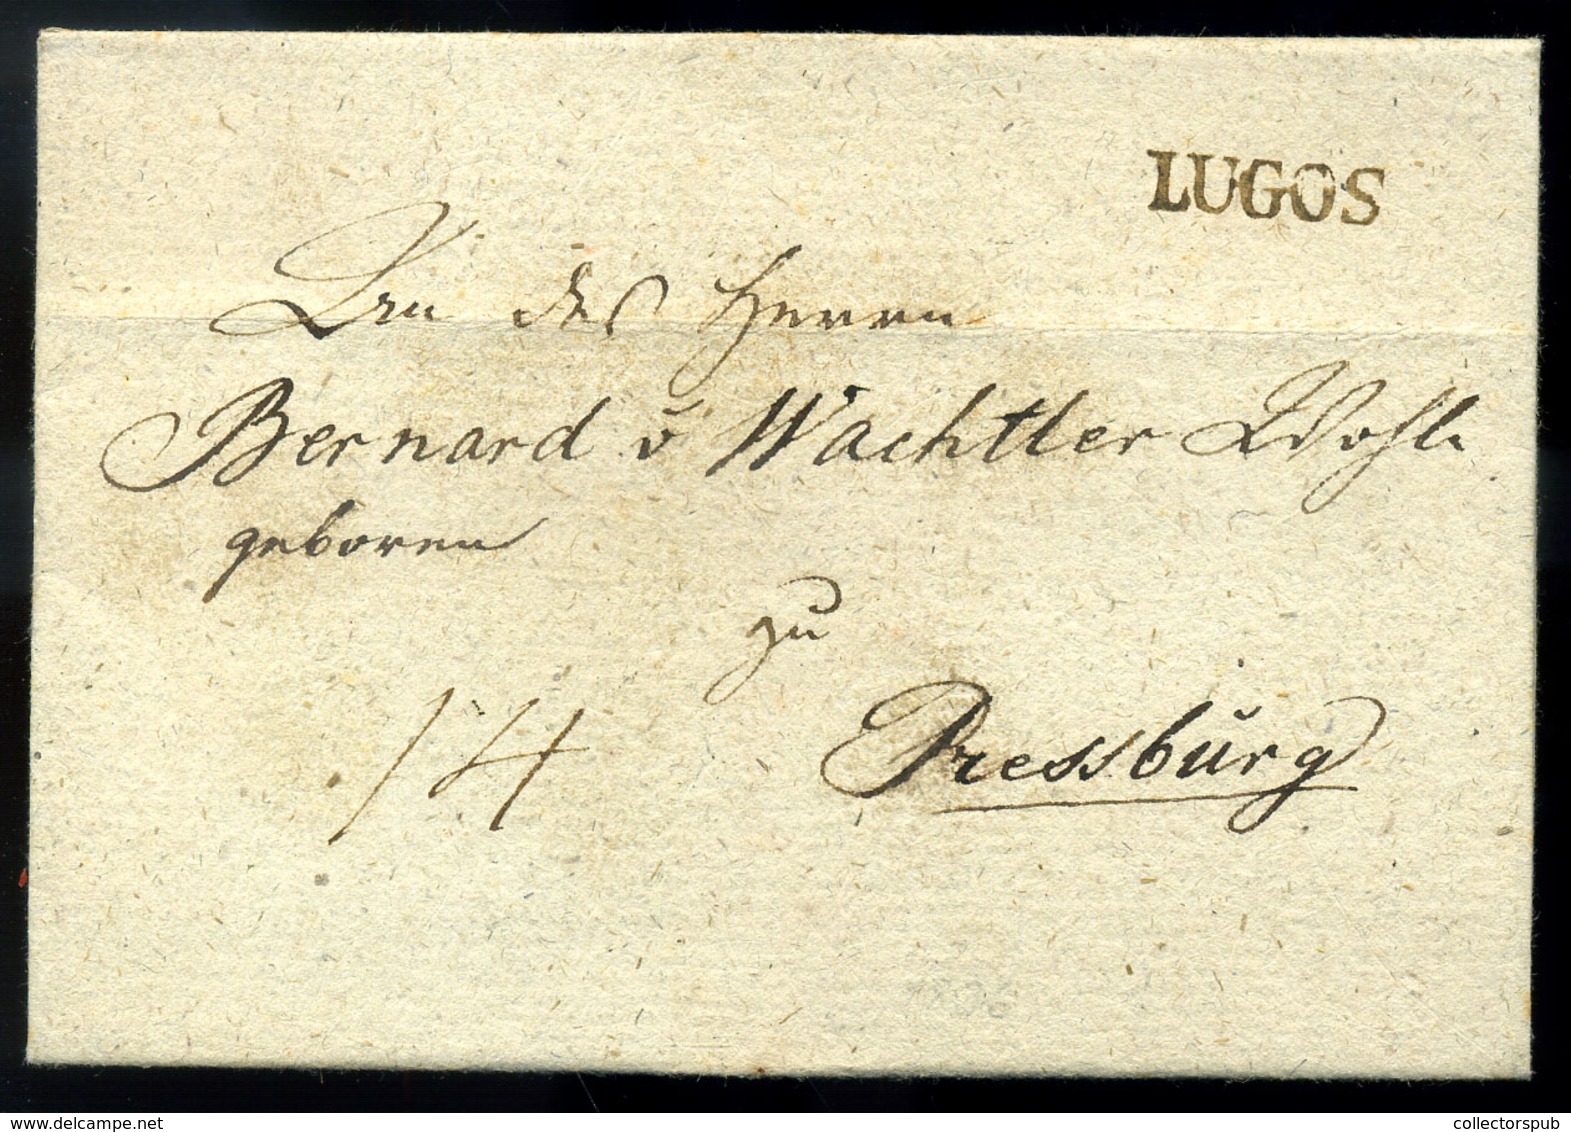 LUGOS
An des Herrn
Bernard v Wachtler Wohl
geboren
zu
14 Pressbŭrg
www.delcampe.net
collectorspub